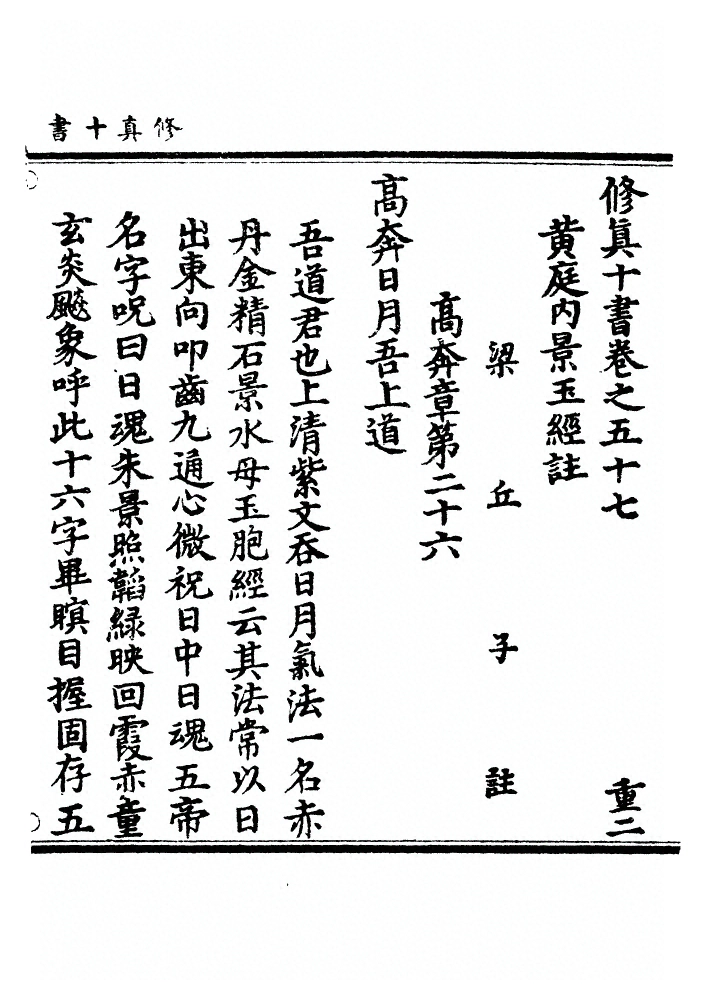 修真十書
修真十書卷之五十七 重二
黄庭内景玉經註
梁丘子註
高奔章第二十六
高奔日月吾上道
吾道君也上清紫文吞日月氣法一名赤
丹金精石景水母玉胞經云其法常以日
出東向叩齒九通心微祝日中日魂五帝
名字呪曰日魂朱景照韜緑映回霞赤童
玄炎飇象呼此十六字畢瞑目握固存五